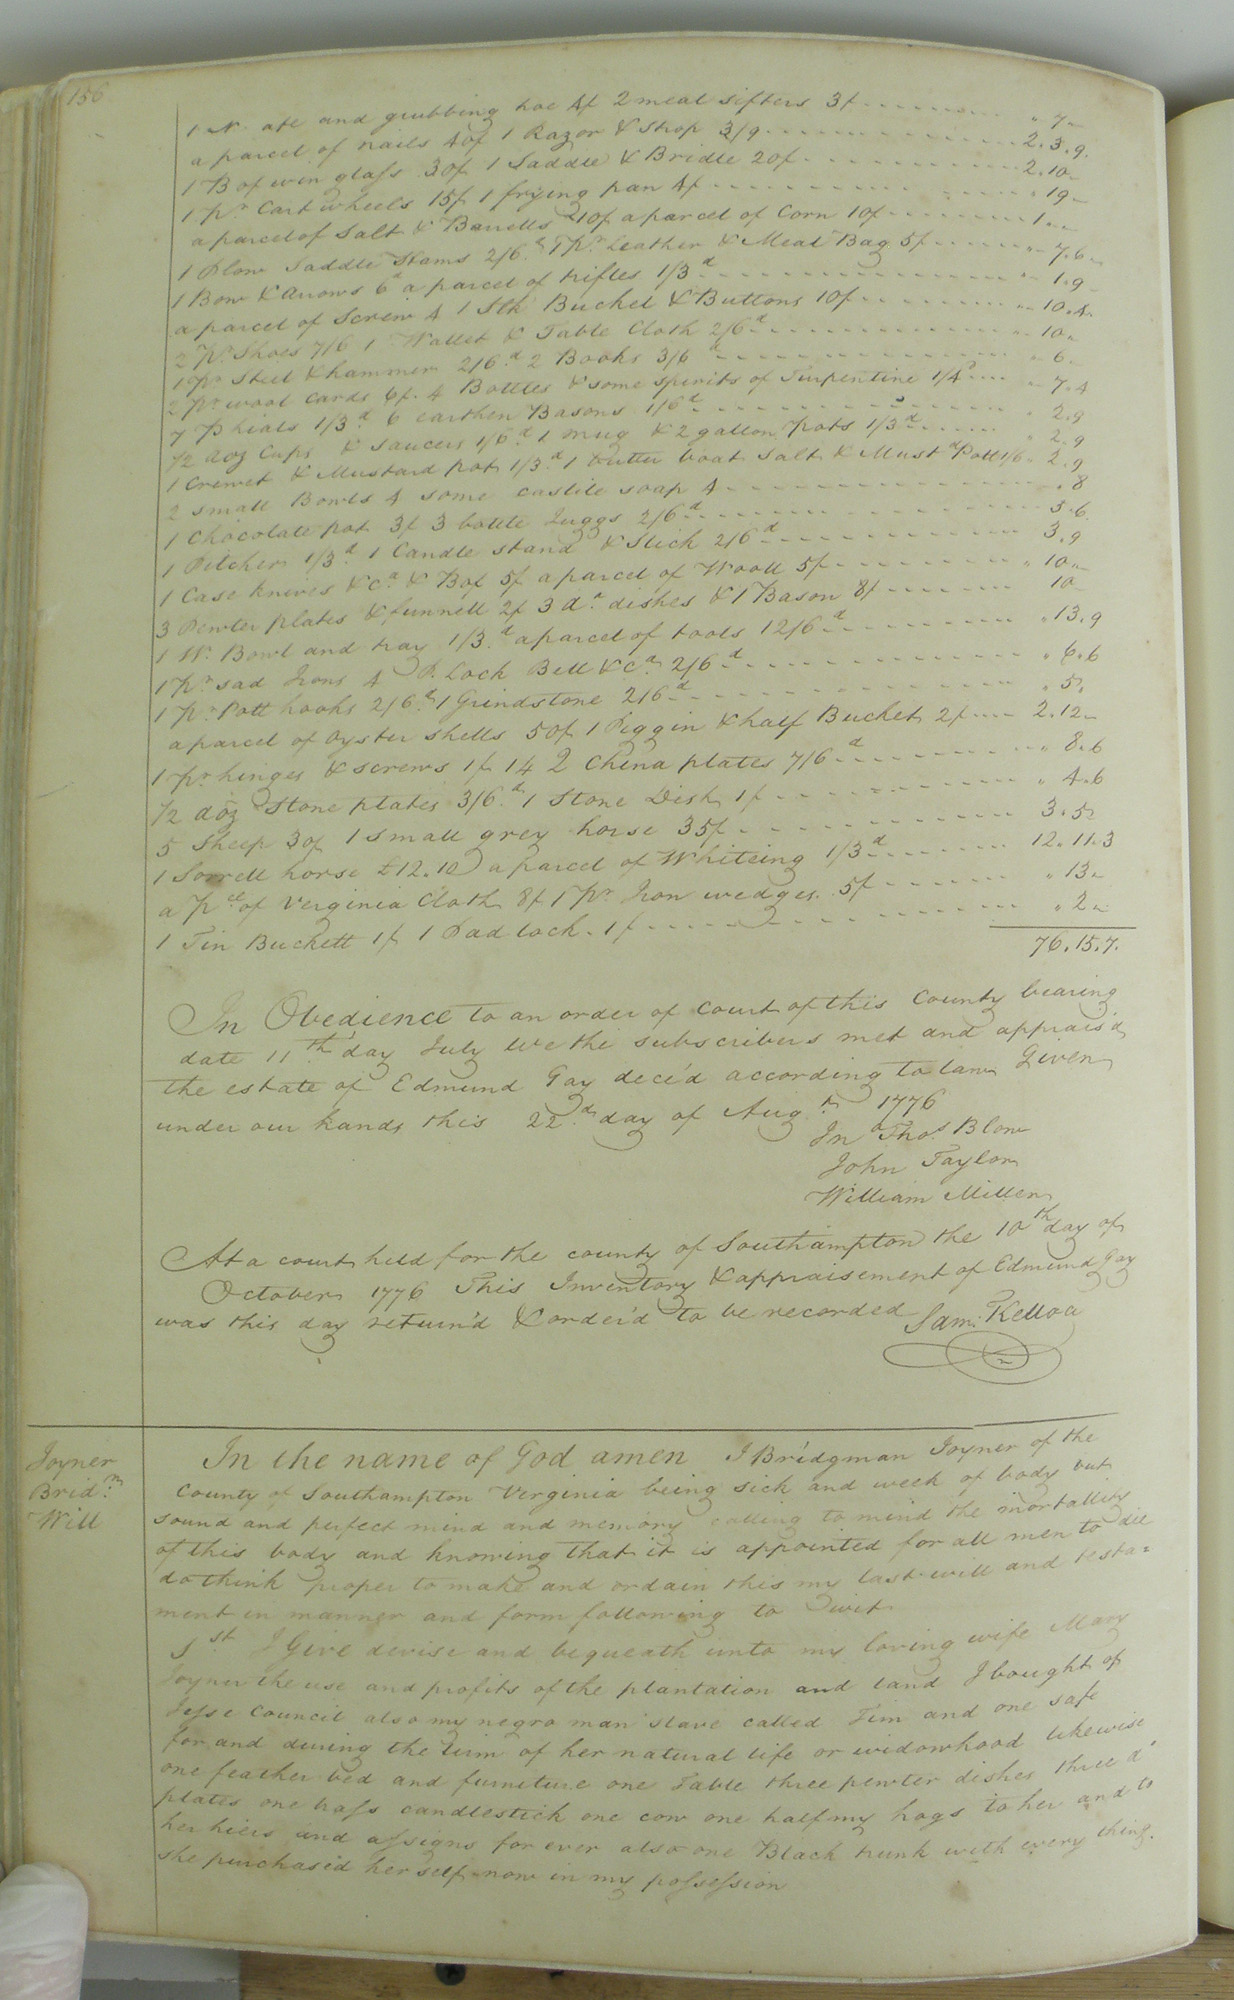 156
1 N. axe and grubbing hoe 4/ 2 meal sifters 3/ " 7 "
a parcel of nails 40/ 1 Razor & Strop 3/9 2.3.9.
1 B of win glass 30/ 1 Saddle & Bridle 20/ 2.10 "
1 pr. Cart wheels 15/ 1 frying pan 4/ " 19 "
a parcel of Salt & Barrells 10/ a parcel of Corn 10/ 1 " "
1 Plow Saddle Hams 2/6d 1 pr. Leather & Meal Bag 5/ " 7.6
1 Bow & Arrows 6d a parcel of trifles 1/3d " 1.9
a parcel of Screw 4 1 Silk Buckel & Buttons 10/ " 10.4.
2 pr. Shoes 7/6 1 Wallet & Table Cloth 2/6d " 10 "
1 pr. Steel & hammer 2/6.d 2 Books 3/6d " 6 "
2 pr. wool cards 6/. 4 Bottles & some spirits of Turpentine 1/4d " 7.4
7 Phials 1/3d 6 earthen Basons 1/6d " 2.9
1/2 doz Cups & Saucers 1/6.d 1 mug & 2 gallon pots 1/3d " 2.9
1 Crewet & Mustard pot 1/3.d 1 butter boat Salt & Mustd Pott 1/6 " 2.9
2 small Bowls 4 some castile soap 4 " 8
1 Chocolate pot 3/ 3 bottle Juggs 2/6d 5.6
1 Pitcher 1/3.d 1 Candle stand & Stick 2/6d 3.9
1 Case knives & Ca. & Box 5/ a parcel of Wooll 5/ " 10 "
3 Pewter plates & funnell 2/ 3 do. dishes & 1 Bason 8/ 10
1 W. Bowl and tray 1/3.d a parcel of tools 12/6d " 13.9
1 pr. sad Irons 4 P. Lock Bell & Ca. 2/6d " 6.6
1 pr. Pott hooks 2/6d 1 Grindstone 2/6d " 5 "
a parcel of Oyster shells 50/ 1 Piggin & half Bucket 2/ 2.12 "
1 pr. hinges & screws 1/ 14 2 China plates 7/6d " 8.6
1/2 doz Stone plates 3/6.d 1 Stone Dish 1/ " 4.6
5 Sheep 30/ 1 small grey horse 35/ 3.5 "
1 Sorrell horse £12.10 a parcel of Whiteing 1/3d 12.11.3
a pce. of Virginia Cloth 8/ 1 pr. Iron wedges. 5/ " 13 "
1 Tin Buckett 1/ 1 Pad lock. 1/ " 2 "
76.15.7.
In Obedience to an order of Court of this County bearing
date 11th day July We the subscribers met and apprais'd
the estate of Edmund Gay dece'd according to law Given
under our hands this 22.d day of Augt. 1776
Jno Thos. Blow
John Taylor
William Miller
At a court held for the county of Southampton the 10th day of
October 1776 This Inventory & appraisement of Edmund Gay
was this day return'd & order'd to be recorded Sam. Kelloa
Joyner
Brid.m
Will
In the name of God amen I Bridgman Joyner of the
County of Southampton Virginia being sick and week of body but
sound and perfect mind and memory calling to mind the mortallity
of this body and knowing that it is appointed for all men to die
do think proper to make and ordain this my last will and testa=
ment in manner and form following to wit
1st I Give devise and bequeath unto my loving wife Mary
Joyner the use and profits of the plantation and land I bought of
Jesse Council also my negro man slave called Tim and one safe
for and during the term of her natural life or widowhood likewise
one feather bed and furniture one Table three pewter dishes three d'
plates one brass candlestick one cow one half my hogs to her and to
her hiers and assigns for ever also one Black trunk with every thing.
she purchased her self now in my possession